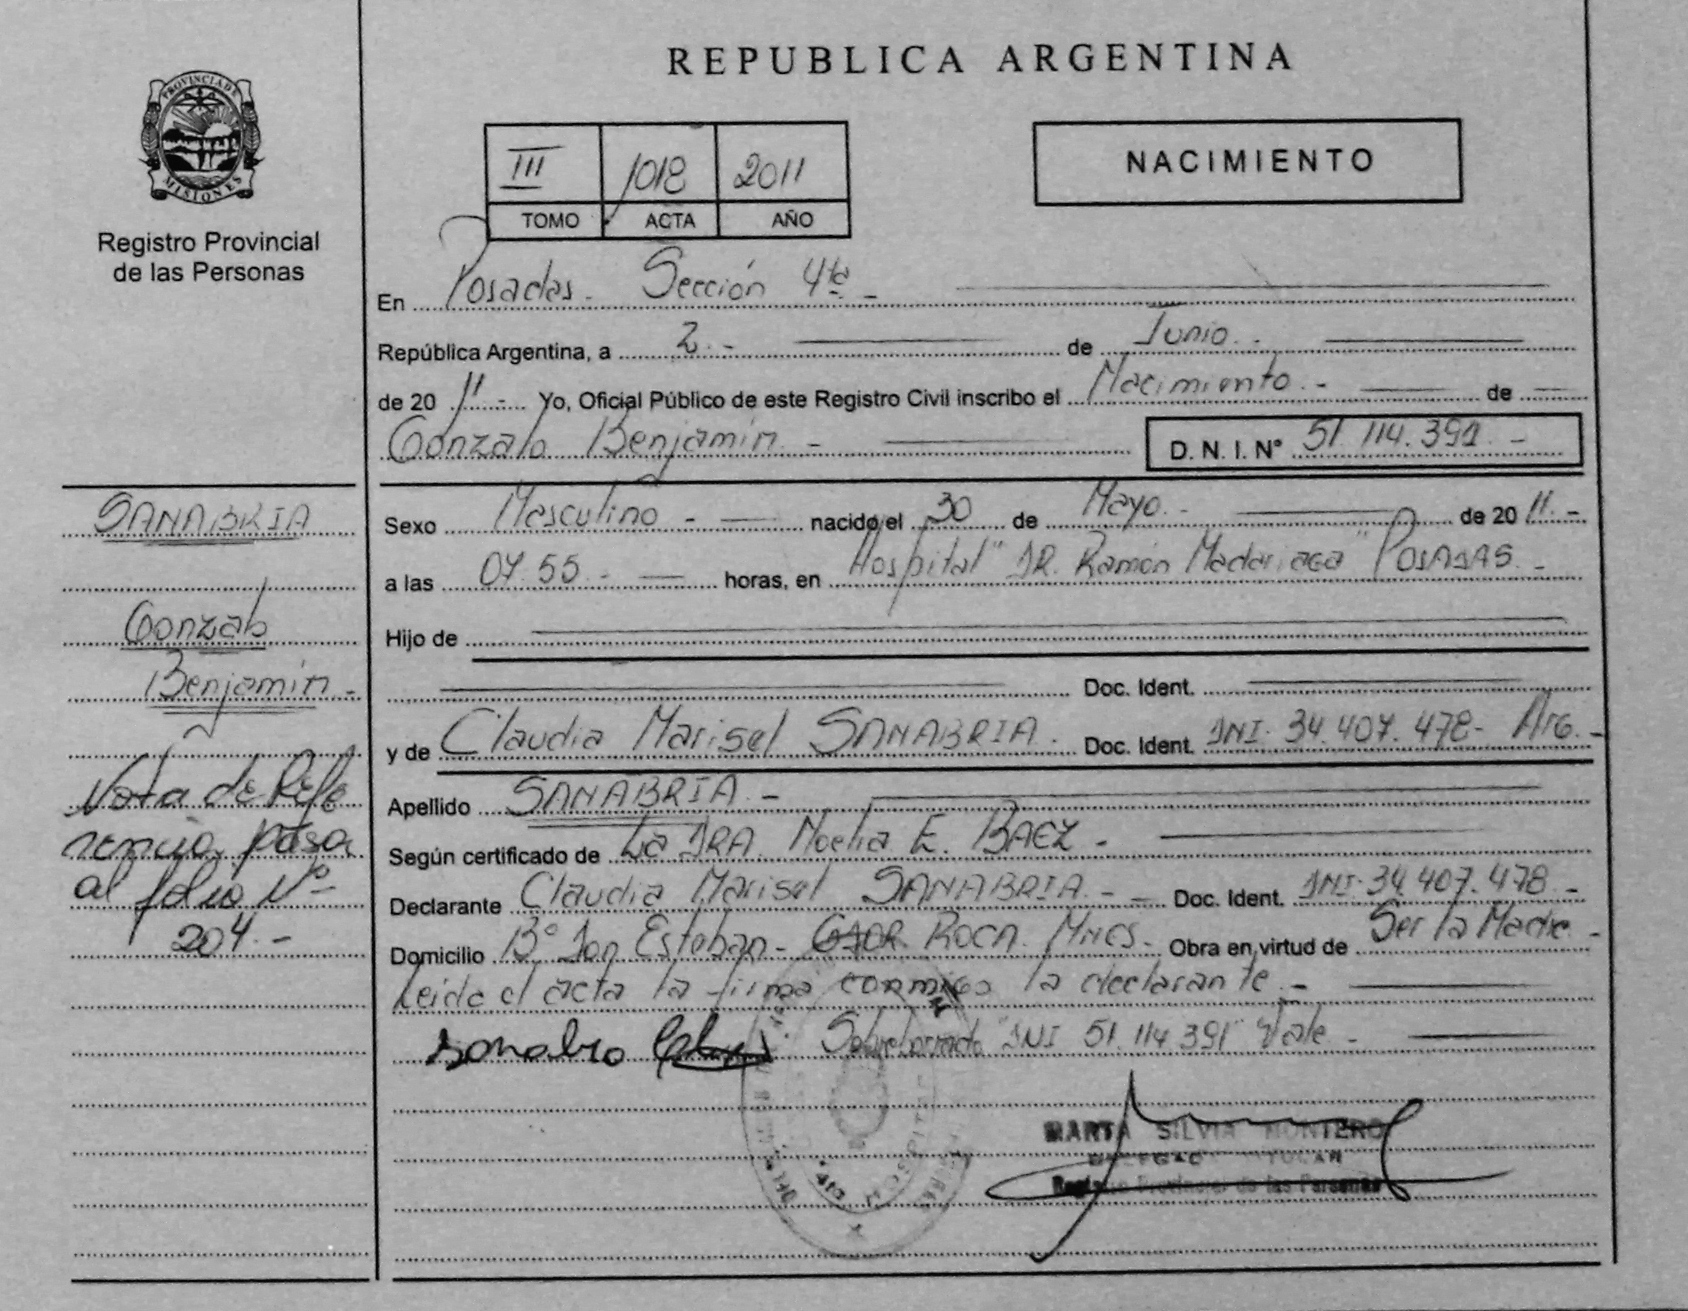 REPUBLICA ARGENTINA
PROVINCIA DE MISIONES
Registro Provincial
de las Personas
III 1018 2011
TOMO ACTA AÑO
NACIMIENTO
En Posadas - Sección 4ta -
República Argentina, a 2.- de Junio.-
de 2011.- Yo, Oficial Público de este Registro Civil inscribo el Nacimiento.- de
Gonzalo Benjamín.- D. N. I. N° 51.114.391.-
SANABRIA
Gonzalo
Benjamín.-
Nota de Refe
rencia pasa
al folio N°
204.-
Sexo Masculino - nacido el 30 de Mayo.- de 2011.-
a las 07.55.- horas, en Hospital "DR. Ramón Madariaga" POSADAS.-
Hijo de
Doc. Ident.
y de Claudia Marisel SANABRIA. Doc. Ident. DNI. 34.407.478- Arg.-
Apellido SANABRIA.-
Según certificado de La DRA. Noelia E. BAEZ.-
Declarante Claudia Marisel SANABRIA.- Doc. Ident. DNI. 34.407.478.-
Domicilio B° San Esteban- Roca. Mnes.- Obra en virtud de Ser la Madre.-
Leida el acta la firma conmigo la declarante.-
Sobreborrado "DNI 51.114.391" Vale.-
MARTA SILVIA MONTERO
Registro Provincial de las Personas